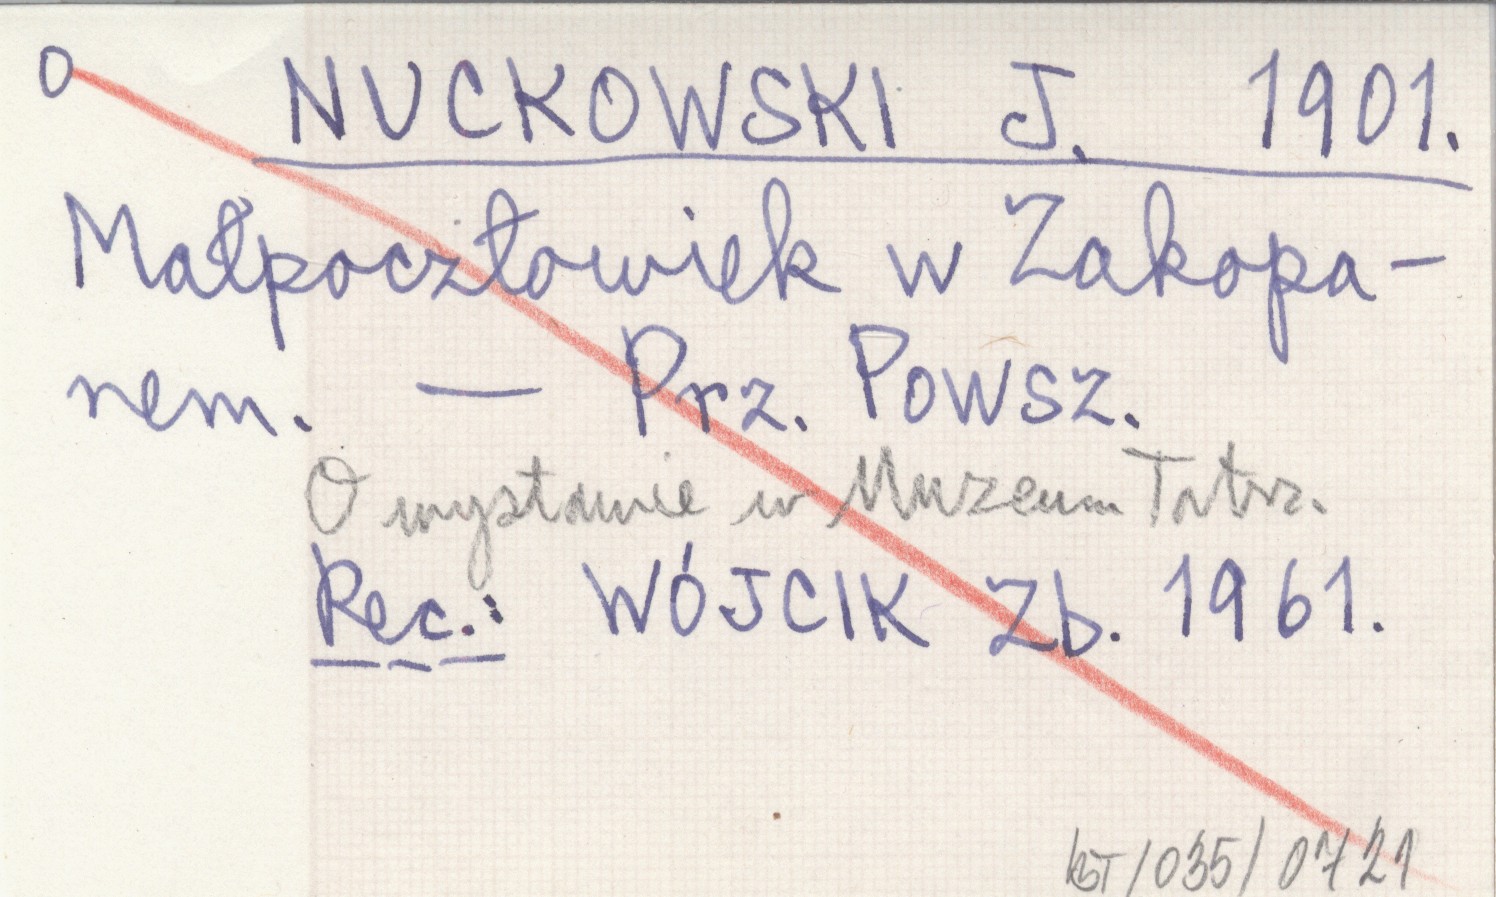 O NUCKOWSKI J. 1901.
Małpoczłowiek w Zakopa-
nem. — Prz. Powsz.
O wystawie w Muzeum Tatrz.
Rec.: WÓJCIK Zb. 1961.
KST/035/0721